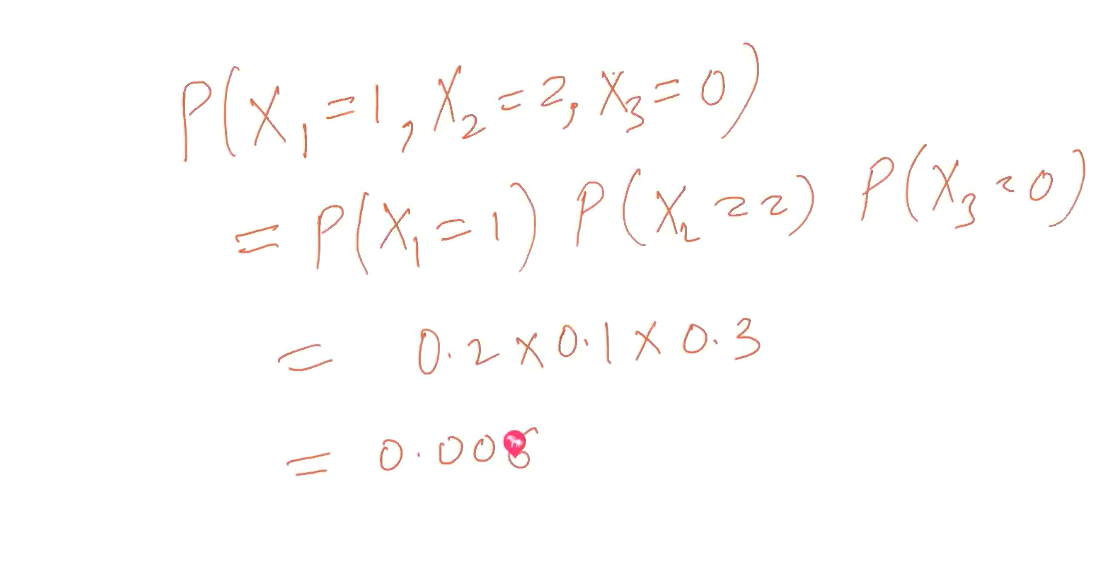 P(X₁=1, X₂=2, X₃=0)
= P(X₁=1) P(X₂=2) P(X₃=0)
= 0.2×0.1×0.3
= 0.00